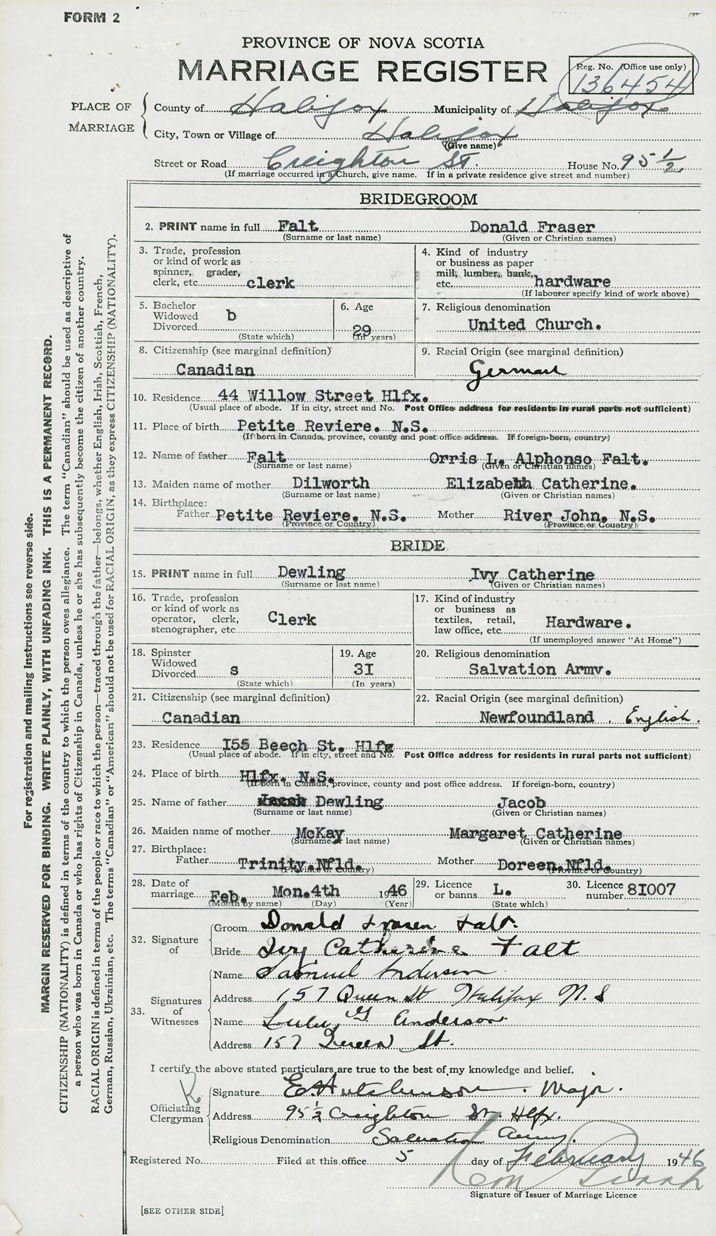 FORM 2
PROVINCE OF NOVA SCOTIA
MARRIAGE REGISTER
Reg. No. (Office use only)
136454
PLACE OF MARRIAGE
County of Halifax Municipality of Halifax
City, Town or Village of Halifax
(Give name)
Street or Road Creighton St. House No. 95 ½
(If marriage occurred in a Church, give name. If in a private residence give street and number)
BRIDEGROOM
2. PRINT name in full Falt Donald Fraser
(Surname or last name) (Given or Christian names)
3. Trade, profession or kind of work as spinner, grader, clerk, etc. clerk
4. Kind of industry or business as paper mill, lumber, bank, etc. hardware
(If labourer specify kind of work above)
5. Bachelor Widowed Divorced b
(State which)
6. Age 29
(In years)
7. Religious denomination
United Church.
8. Citizenship (see marginal definition)
Canadian
9. Racial Origin (see marginal definition)
German
10. Residence 44 Willow Street Hlfx.
(Usual place of abode. If in city, street and No. Post Office address for residents in rural parts not sufficient)
11. Place of birth Petite Reviere. N.S.
(If born in Canada, province, county and post office address. If foreign-born, country)
12. Name of father Falt Orris L. Alphonso Falt.
(Surname or last name) (Given or Christian names)
13. Maiden name of mother Dilworth Elizabeth Catherine.
(Surname or last name) (Given or Christian names)
14. Birthplace:
Father Petite Reviere, N.S. Mother River John, N.S.
(Province or Country) (Province or Country)
BRIDE
15. PRINT name in full Dewling Ivy Catherine
(Surname or last name) (Given or Christian names)
16. Trade, profession or kind of work as operator, clerk, stenographer, etc. Clerk
17. Kind of industry or business as textiles, retail, law office, etc. Hardware.
(If unemployed answer "At Home")
18. Spinster Widowed Divorced s
(State which)
19. Age 3I
(In years)
20. Religious denomination
Salvation Army.
21. Citizenship (see marginal definition)
Canadian
22. Racial Origin (see marginal definition)
Newfoundland . English.
23. Residence I55 Beech St. Hlfx
(Usual place of abode. If in city, street and No. Post Office address for residents in rural parts not sufficient)
24. Place of birth Hlfx. N.S.
(If born in Canada, province, county and post office address. If foreign-born, country)
25. Name of father Dewling Jacob
(Surname or last name) (Given or Christian names)
26. Maiden name of mother McKay Margaret Catherine
(Surname or last name) (Given or Christian names)
27. Birthplace:
Father Trinity.Nfld. Mother Doreen.Nfld.
(Province or Country) (Province or Country)
28. Date of marriage Feb. Mon.4th 1946
(Month by name) (Day)
29. Licence or banns L.
(State which)
30. Licence number 8I007
32. Signature of
Groom Donald Fraser Falt.
Bride Ivy Catherine Falt
33. Signatures of Witnesses
Name Samuel Anderson
Address 157 Queen St Halifax N.S
Name Lulu G Anderson
Address 157 Queen St.
I certify the above stated particulars are true to the best of my knowledge and belief.
Officiating Clergyman
Signature E Hutchinson. Major.
Address 95 ½ Creighton St. Hlfx.
Religious Denomination Salvation Army.
Registered No. Filed at this office 5 day of February 1946
Signature of Issuer of Marriage Licence
[SEE OTHER SIDE]
For registration and mailing instructions see reverse side.
MARGIN RESERVED FOR BINDING. WRITE PLAINLY, WITH UNFADING INK. THIS IS A PERMANENT RECORD.
CITIZENSHIP (NATIONALITY) is defined in terms of the country to which the person owes allegiance. The term "Canadian" should be used as descriptive of
a person who was born in Canada or who has rights of Citizenship in Canada, unless he or she has subsequently become the citizen of another country.
RACIAL ORIGIN is defined in terms of the people or race to which the person—traced through the father—belongs, whether English, Irish, Scottish, French,
German, Russian, Ukrainian, etc. The terms "Canadian" or "American" should not be used for RACIAL ORIGIN, as they express CITIZENSHIP (NATIONALITY).